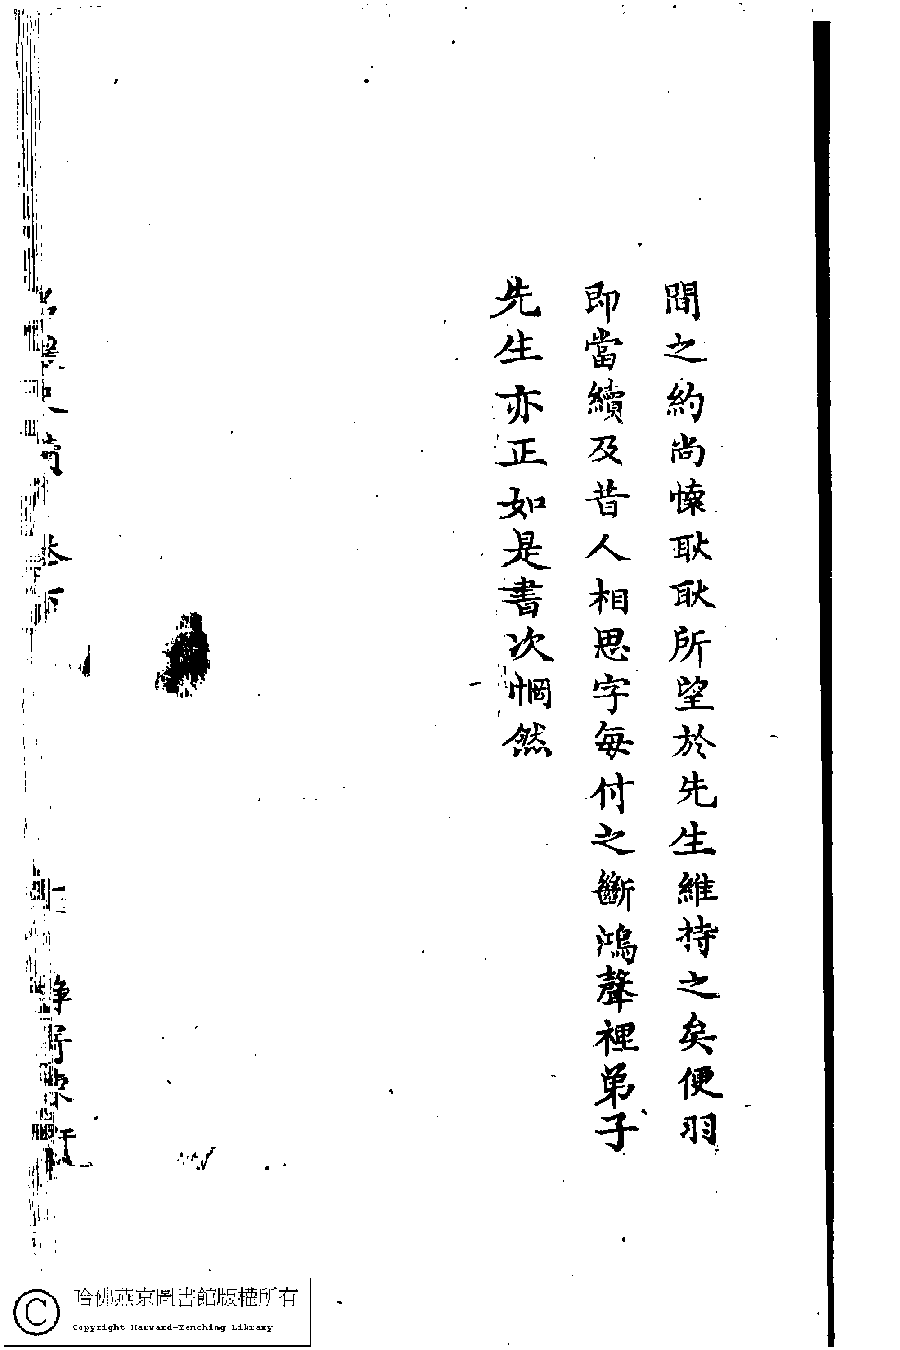 間之約尚懷耿耿所望於先生維持之矣便羽
即當續及昔人相思字每付之斷鴻聲裡弟子
先生亦正如是書次惘然
靜寄東軒
哈佛燕京圖書館版權所有
Copyright Harvard-Yenching Library